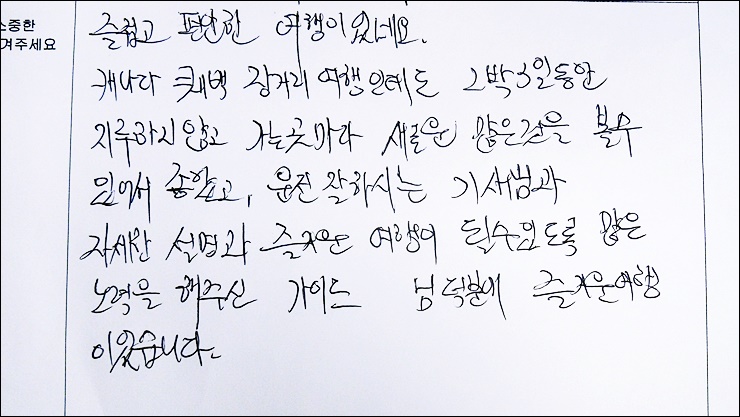 소중한
겨주세요
즐겁고 편안한 여행이 있네요.
캐나다 퀘백 장거리 여행인데도 2박3일동안
지루하지 않고 가는곳마다 새로운 많은것을 볼수
있어서 좋았고, 운전 잘하시는 기사님과
자세한 설명과 즐거운 여행이 될수있도록 많은
노력을 해주신 가이드 님 덕분에 즐거운여행
이었습니다.